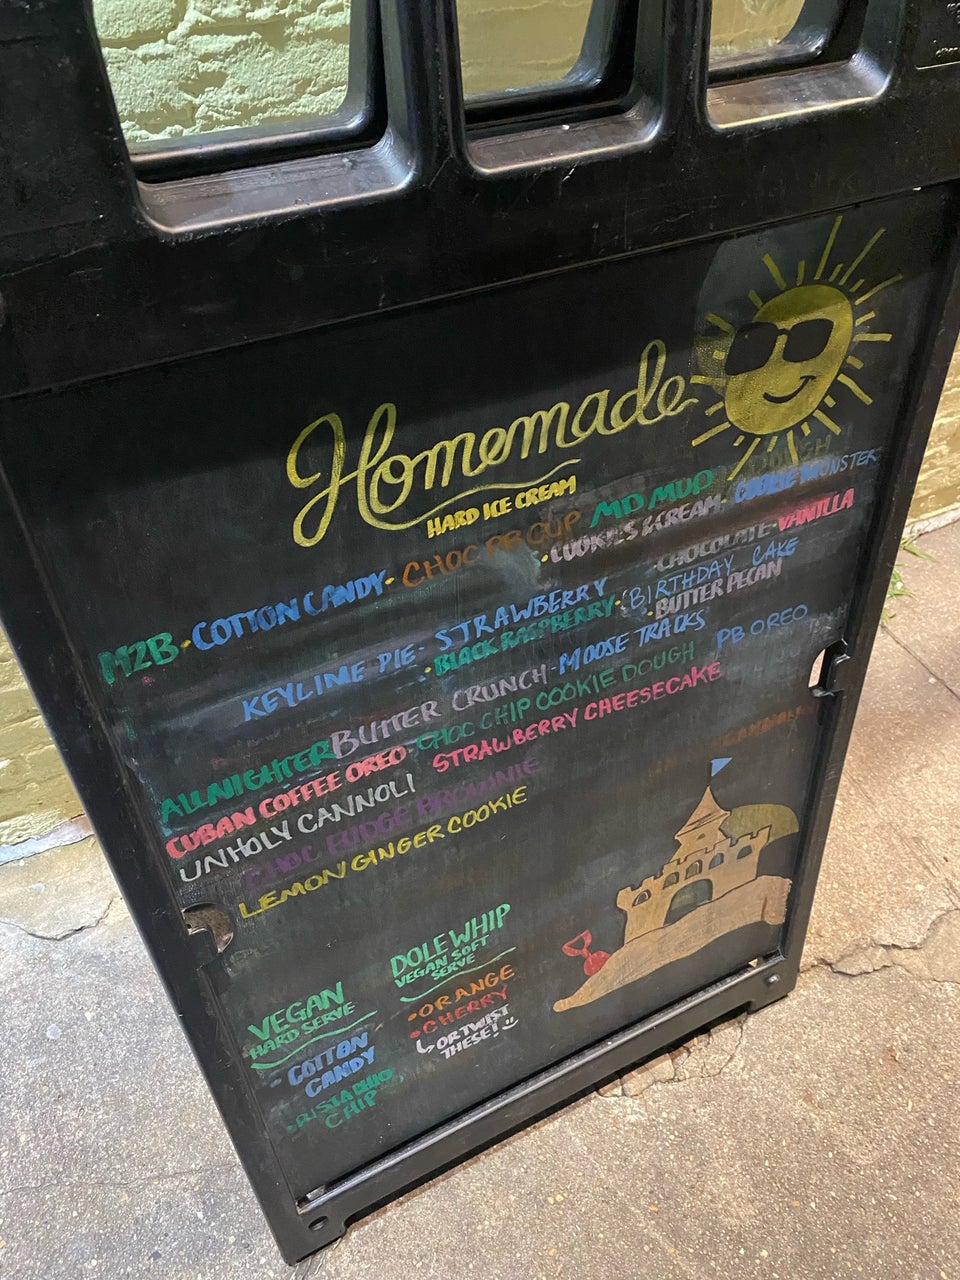 Homemade
HARD ICE CREAM
M2B · COTTON CANDY · CHOC PB CUP MD MUD
· COOKIES & CREAM · COOKIE MONSTER
KEYLIME PIE - STRAWBERRY · CHOCOLATE - VANILLA
· BLACK RASPBERRY · BIRTHDAY CAKE
BUTTER CRUNCH - MOOSE TRACKS · BUTTER PECAN
ALLNIGHTER CHOC CHIP COOKIE DOUGH PB OREO
CUBAN COFFEE OREO STRAWBERRY CHEESECAKE
UNHOLY CANNOLI
CHOC FUDGE BROWNIE
LEMON GINGER COOKIE
VEGAN
HARD SERVE
- COTTON
CANDY
CHIP
DOLE WHIP
VEGAN SOFT
SERVE
· ORANGE
· CHERRY
OR TWIST
THESE!